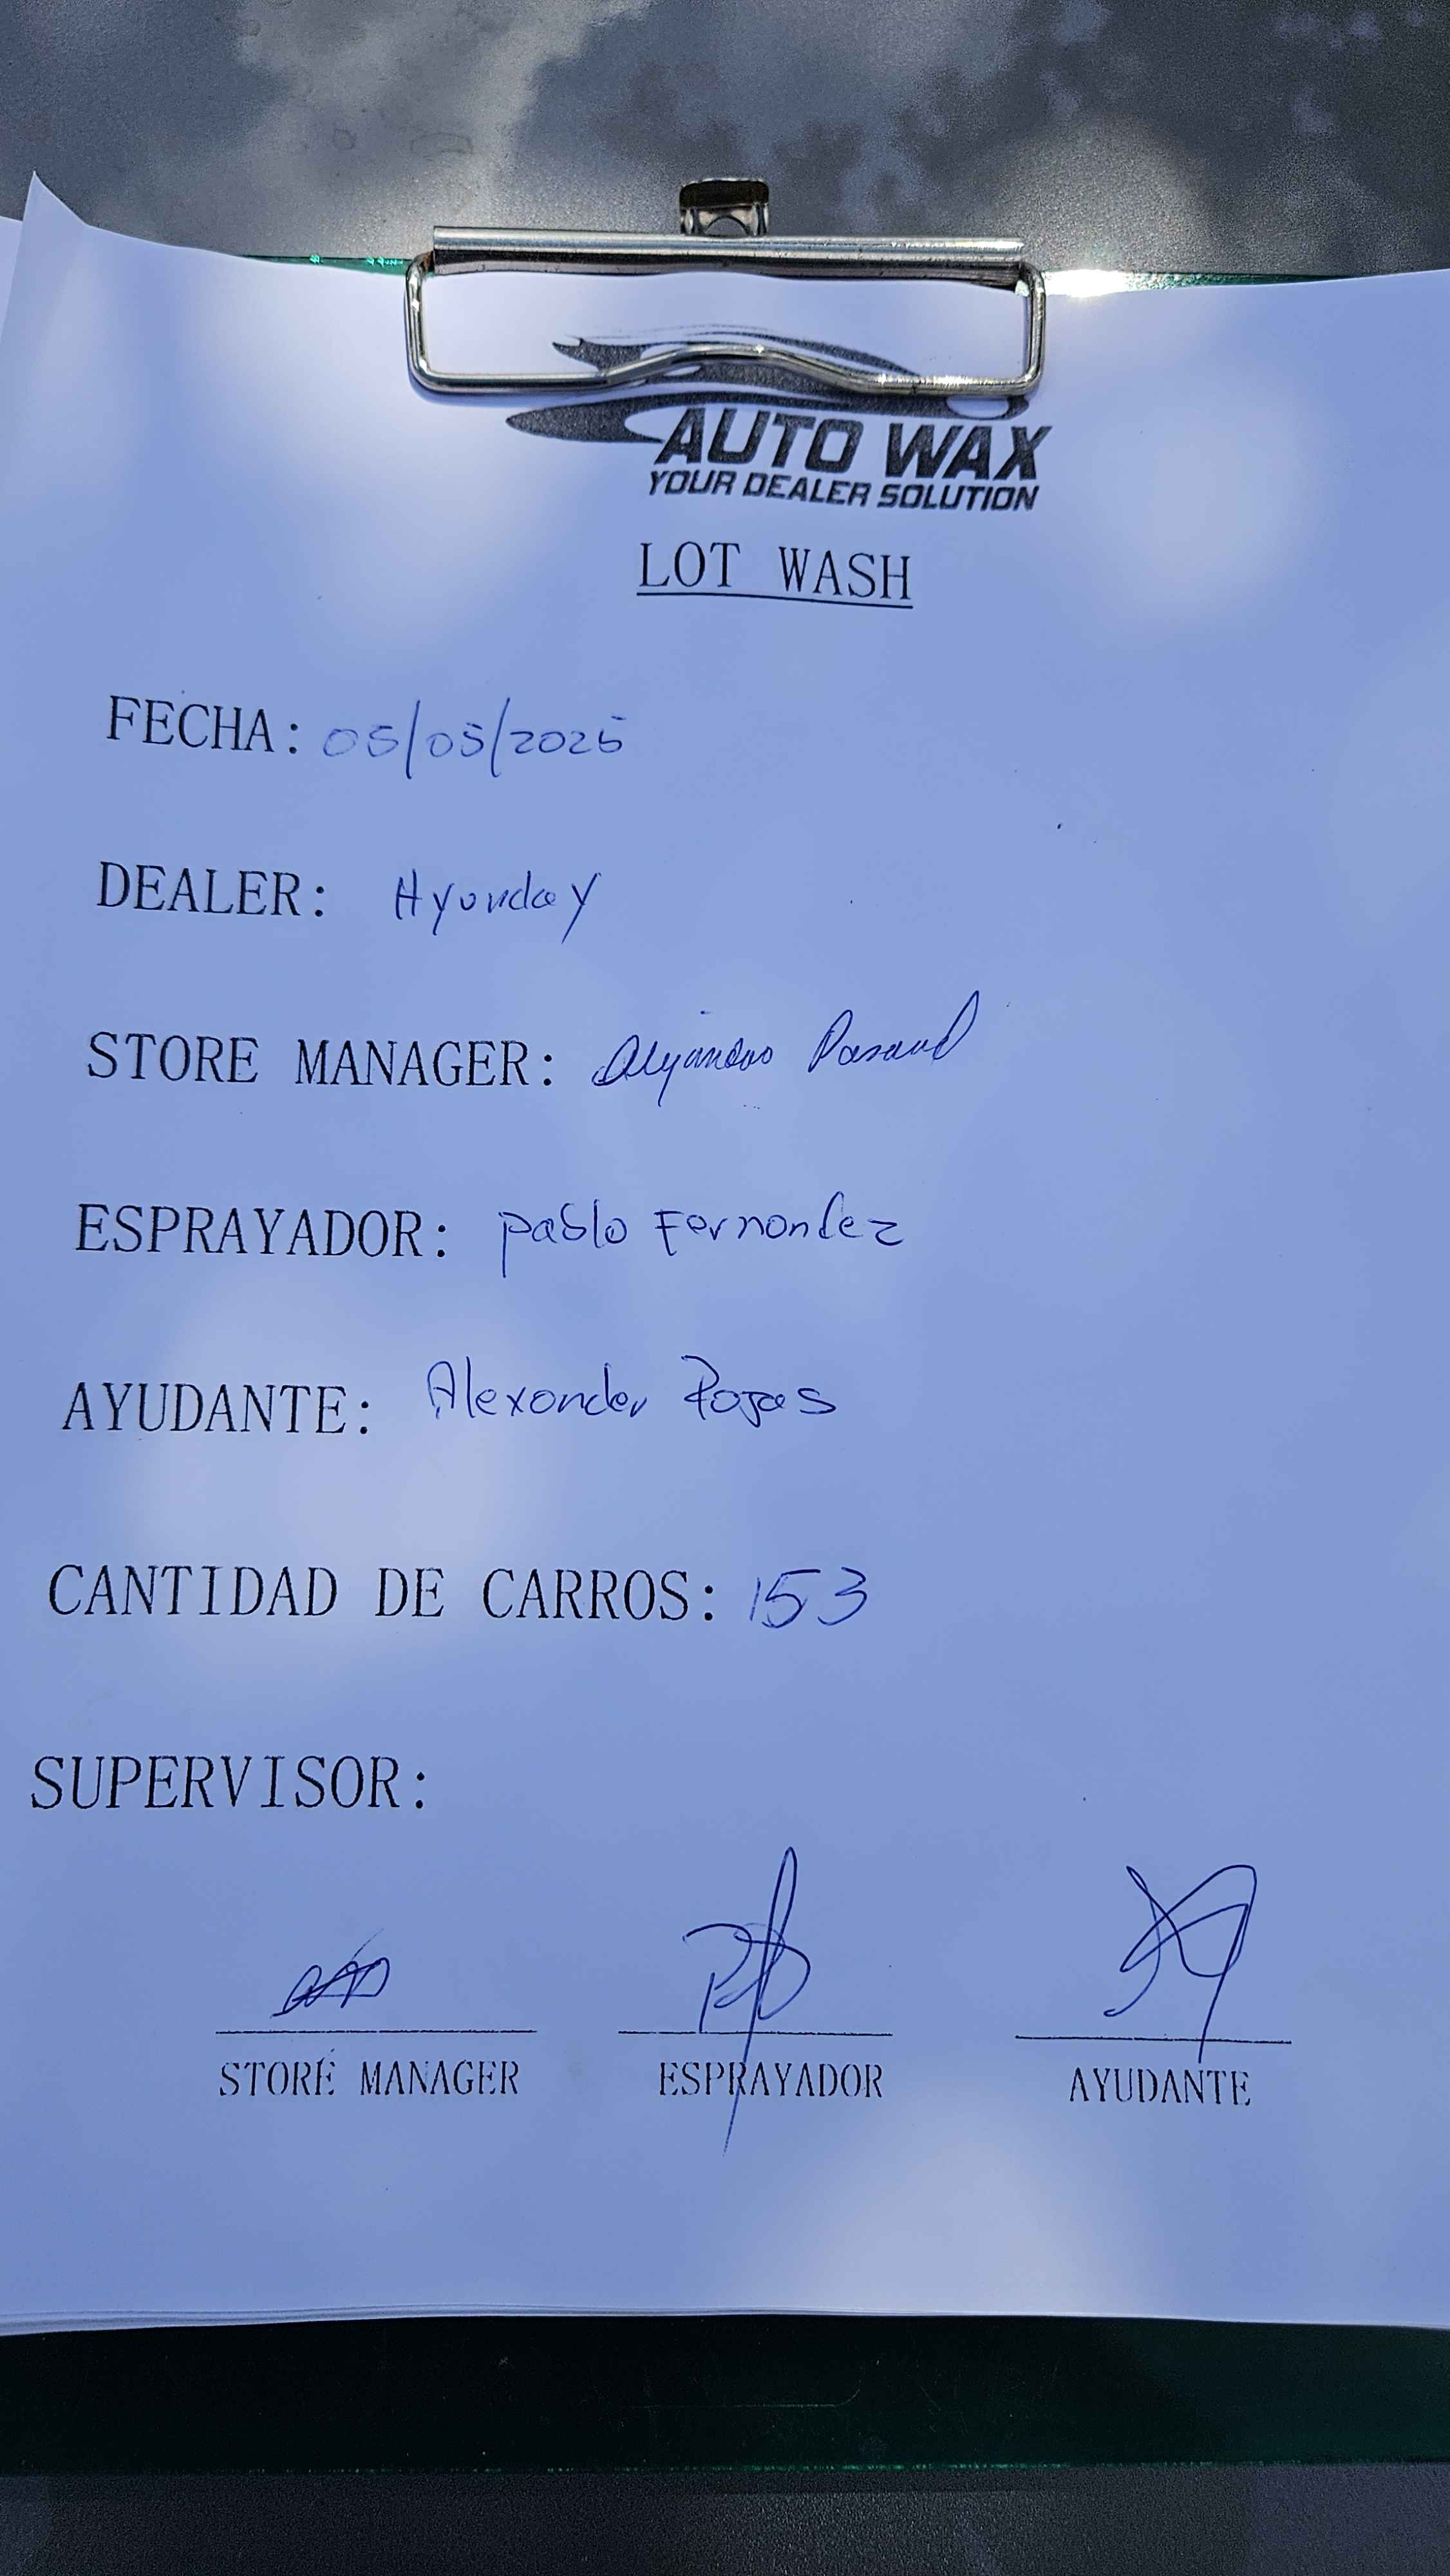 AUTO WAX
YOUR DEALER SOLUTION
LOT WASH
FECHA: 05/05/2025
DEALER: Hyunday
STORE MANAGER: Alejandro
ESPRAYADOR: pablo Fernandez
AYUDANTE: Alexander Rojas
CANTIDAD DE CARROS: 153
SUPERVISOR:
STORE MANAGER ESPRAYADOR AYUDANTE